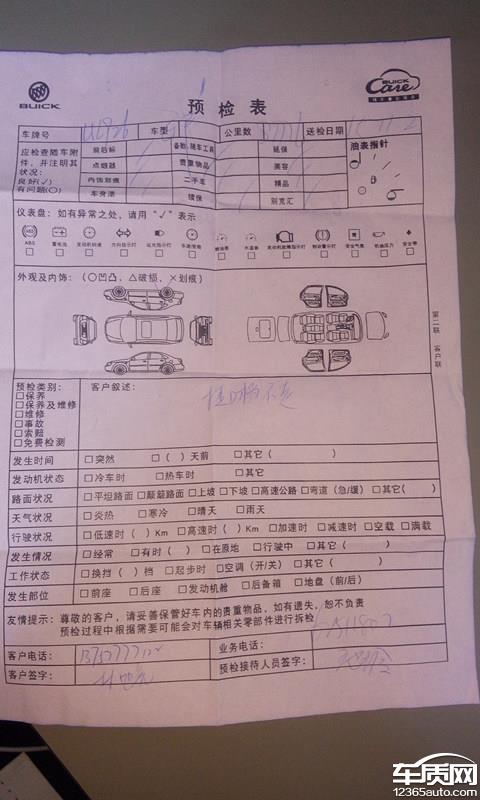 BUICK
预检表
BUICK
Care
车牌号 车型 公里数 送检日期
应检查随车附件，并注明其状况：
良好(√)
有问题(○)
前后标 备胎、随车工具 延保 油表指针
点烟器 贵重物品 美容
内饰划痕 二手车 精品
车身漆 续保 别克汇
仪表盘：如有异常之处，请用“√”表示
ABS 蓄电池 发动机转速 方向指示灯 远光指示灯 车速/里程 燃油表 水温表 发动机故障指示灯 制动警示灯 安全气囊 机油压力 安全带
外观及内饰：(○凹凸，△破损，×划痕)
第二联 客户联
预检类别： 客户叙述：
□保养
□保养及维修
□维修
□事故
□索赔
□免费检测
挂D档不走
发生时间 □突然 □( )天前 □其它( )
发动机状态 □冷车时 □热车时 □其它
路面状况 □平坦路面 □颠簸路面 □上坡 □下坡 □高速公路 □弯道(急/缓) □其它( )
天气状况 □炎热 □寒冷 □晴天 □雨天
行驶状况 □低速时( )Km □高速时( )Km □加速时 □减速时 □空载 □满载
发生情况 □经常 □有时( ) □在原地 □行驶中 □其它( )
工作状态 □换挡( )档 □起步时 □空调(开/关) □其它( )
发生部位 □前座 □后座 □发动机舱 □后备箱 □地盘(前/后)
友情提示：尊敬的客户，请妥善保管好车内的贵重物品，如有遗失，恕不负责
预检过程中根据需要可能会对车辆相关零部件进行拆检
客户电话： 业务电话：
客户签字： 预检接待人员签字：
车质网
12365auto.com